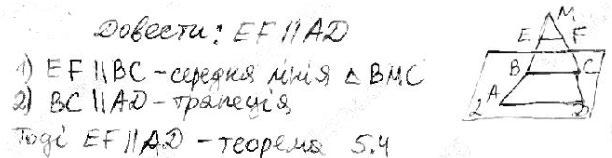 Довести: EF || AD
1) EF || BC - середня лінія △ BMC
2) BC || AD - трапеція
Тоді EF || AD - теорема 5.4
M
E F
B C
A D
2